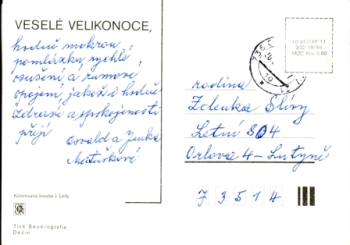 VESELÉ VELIKONOCE,
hodně mokrou
pomlázku, rychlé
osušení a rumové
opojení jakož i hodně
zdraví a spokojenosti
přejí
Osvald a Jenka
Matuškovi
Kolorovaná kresba J. Lady
Tisk Severografia
Děčín
rodina
Zdeňka Slívy
Letní 804
Orlová 4 - Lutyně
7 3 5 1 4